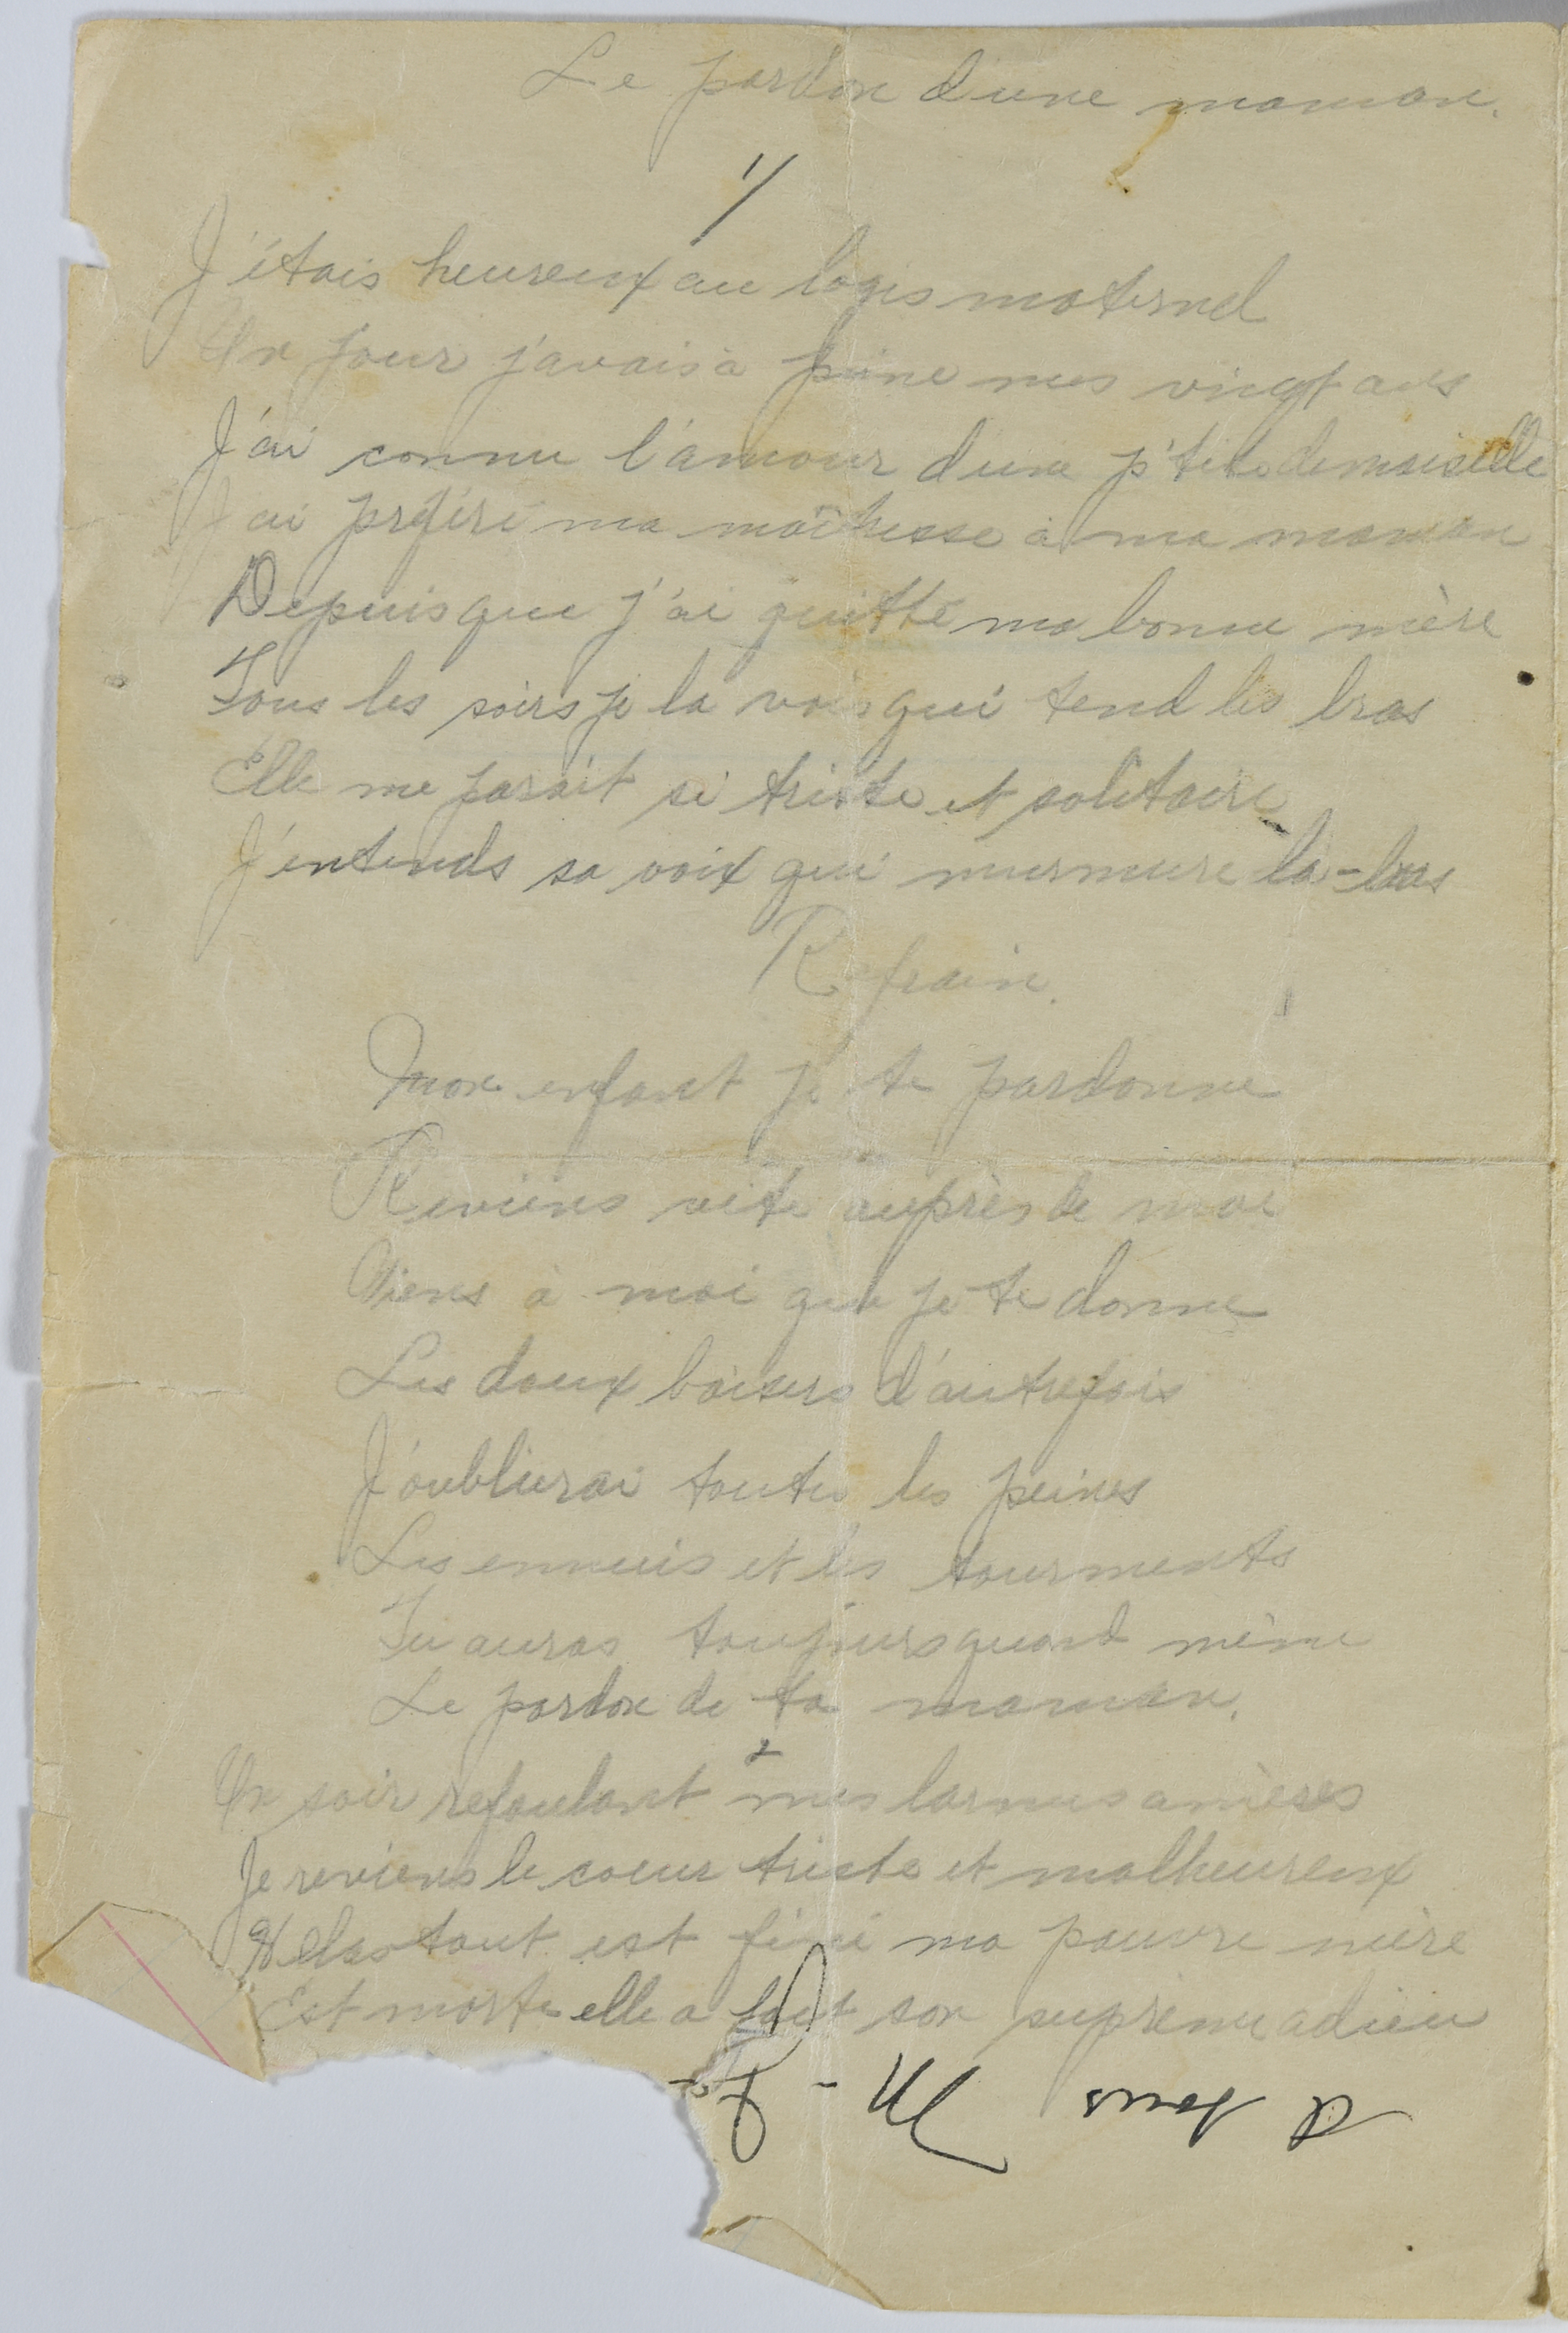 Le pardon d'une maman.
1/
J'étais heureux au logis maternel
Un jour j'avais à peine mes vingt ans
J'ai connu l'amour d'une p'tite demoiselle
J'ai préféré ma maîtresse à ma maman
Depuis que j'ai quitté ma bonne mère
Tous les soirs je la vois qui tend les bras
Elle me parait si triste et solitaire
J'entends sa voix qui murmure la-bas
Refrain.
Mon enfant je te pardonne
Reviens vite auprès de moi
Viens à moi que je te donne
Les doux baisers d'autrefois
J'oublierai toutes les peines
Les ennuis et les tourments
Tu auras toujours quand même
Le pardon de ta maman.
2
Un soir refoulant mes larmes amères
Je reviens le coeur triste et malheureux
Helas tout est fini ma pauvre mère
Est morte elle a fait son suprême adieu